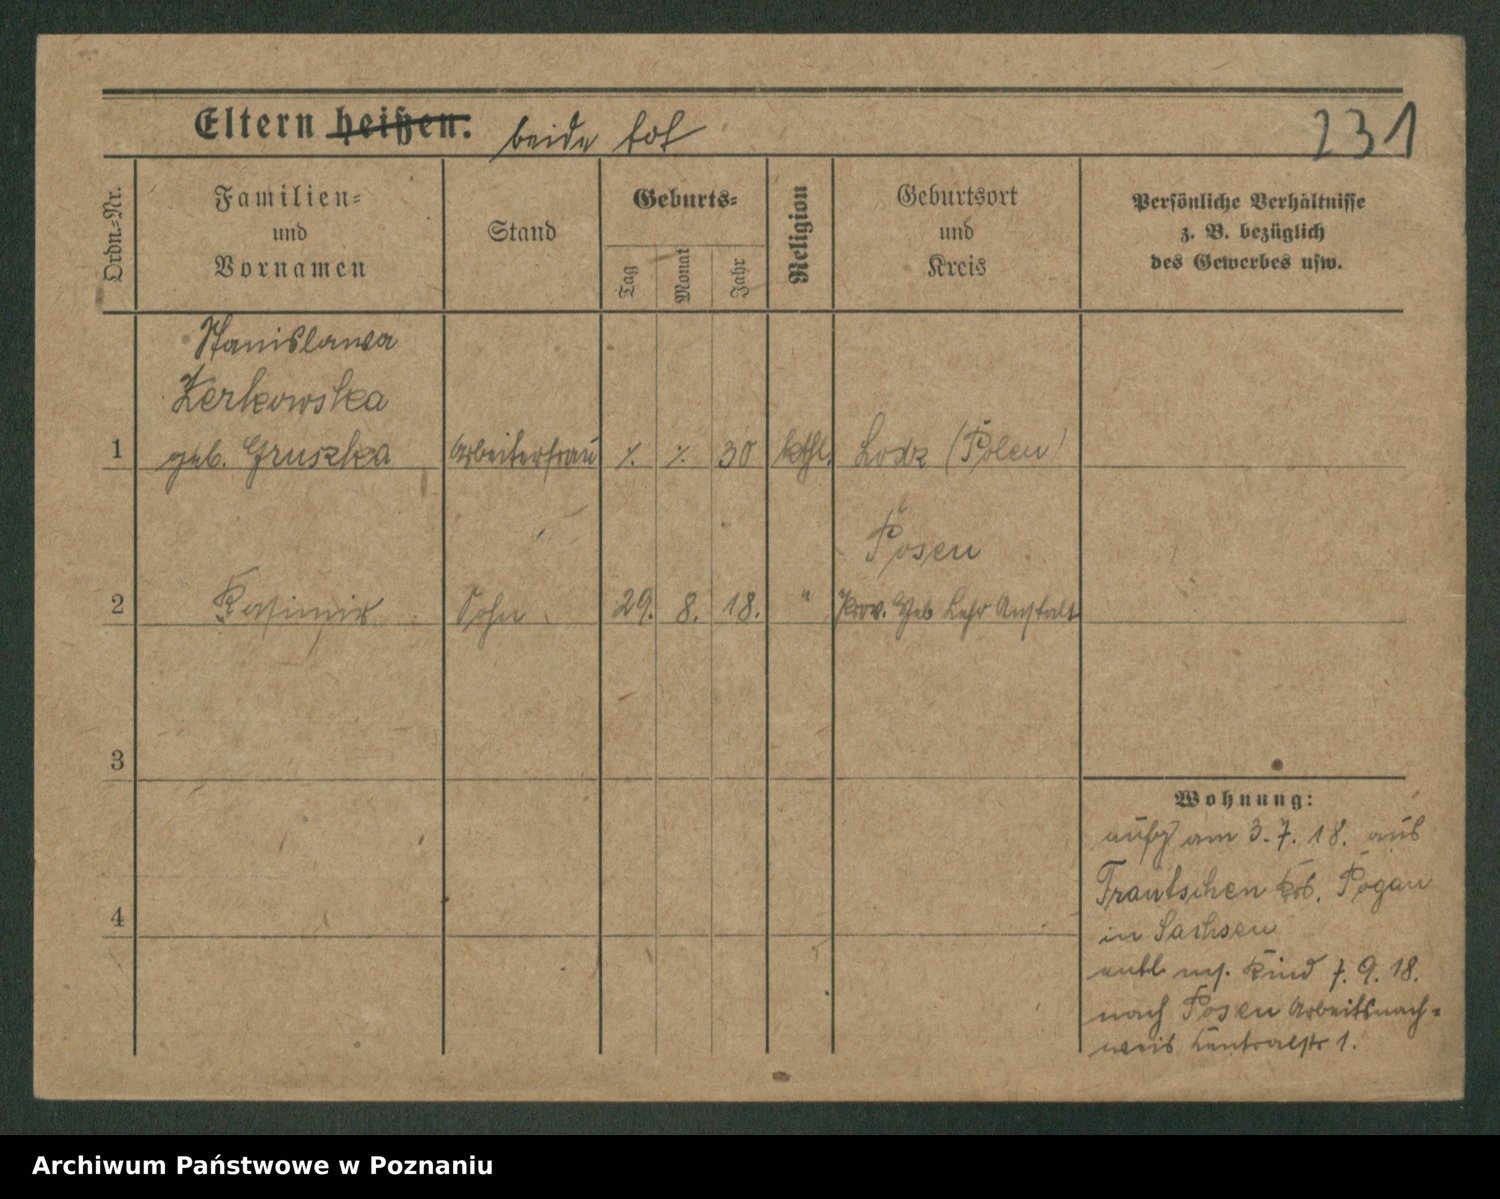 Eltern heißen: beide tot
231
Ordn.-Nr.
Familien-
und
Vornamen
Stand
Geburts-
Tag
Monat
Jahr
Religion
Geburtsort
und
Kreis
Persönliche Verhältnisse
z. B. bezüglich
des Gewerbes usw.
Stanislawa
Zerkowska
1 geb. Gruszka Arbeiterfrau ⁒ ⁒ 30 kthl. Lodz (Polen)
Posen
2 Kasimir Sohn. 29. 8. 18. " Prov. Heb Lehr Anstalt
3
Wohnung:
aufg am 3.7.18. aus
Trautschen Pogau
in Sachsen
4
entl. m. Kind 7.9.18.
nach Posen Arbeitsnach-
weis Centralstr 1.
Archiwum Państwowe w Poznaniu